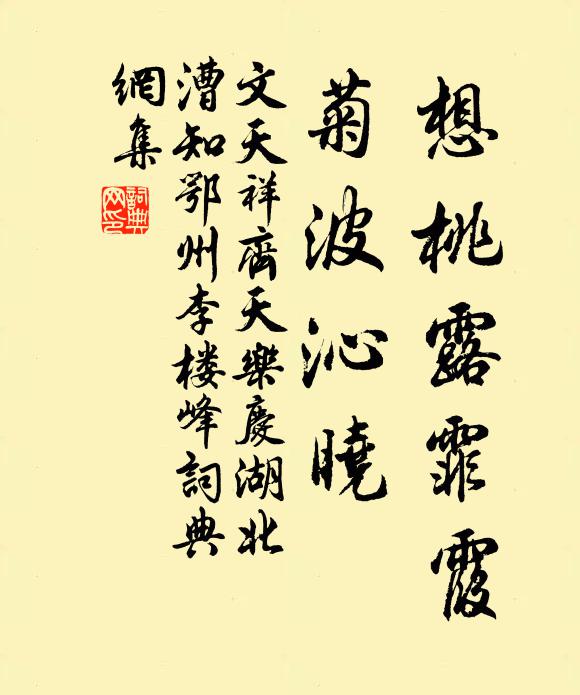 想桃露霏霞
菊波沁曉
文天祥齊天樂慶湖北
漕知鄂州李楼峰詞典
網集
詞典网印